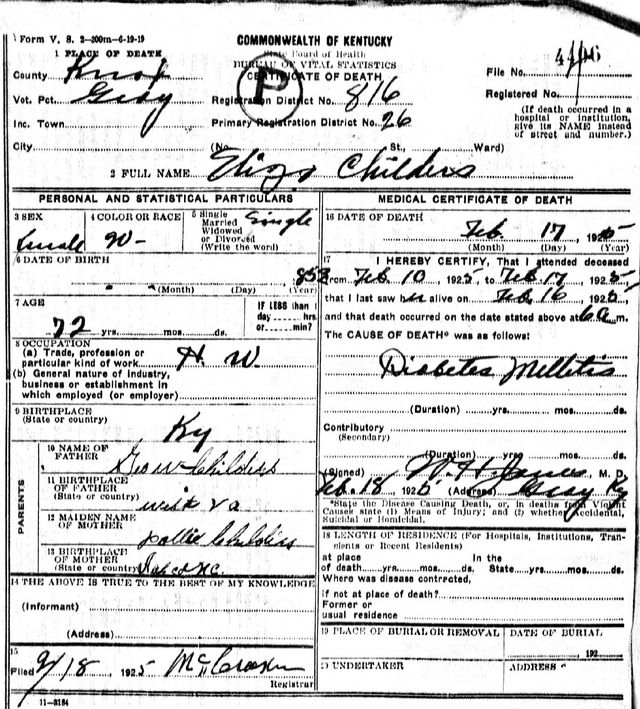 Form V. S. 2-200m-6-19-19
COMMONWEALTH OF KENTUCKY
State Board of Health
BUREAU OF VITAL STATISTICS
CERTIFICATE OF DEATH
P
1 PLACE OF DEATH
County Knox
Vot. Pct. Gray
Inc. Town
City
Registration District No. 816
Primary Registration District No. 26
(No. St., Ward)
File No.
Registered No.
(If death occurred in a
hospital or institution,
give its NAME instead
of street and number.)
2 FULL NAME Eliza Childers
PERSONAL AND STATISTICAL PARTICULARS
3 SEX
Female
4 COLOR OR RACE
W-
5 Single
Married
Widowed
or Divorced
(Write the word)
Single
6 DATE OF BIRTH
853
(Month) (Day) (Year)
7 AGE
72 yrs. mos. ds.
IF LESS than 1
day hrs.
or min?
8 OCCUPATION
(a) Trade, profession or
particular kind of work H. W.
(b) General nature of industry,
business or establishment in
which employed (or employer)
9 BIRTHPLACE
(State or country)
Ky
PARENTS
10 NAME OF
FATHER
Childers
11 BIRTHPLACE
OF FATHER
(State or country)
West Va
12 MAIDEN NAME
OF MOTHER
Childers
13 BIRTHPLACE
OF MOTHER
(State or country)
14 THE ABOVE IS TRUE TO THE BEST OF MY KNOWLEDGE
(Informant)
(Address)
15
Filed 2/18, 1925
Registrar
11-3184
MEDICAL CERTIFICATE OF DEATH
16 DATE OF DEATH
Feb. 17 1925
(Month) (Day) (Year)
17 I HEREBY CERTIFY, That I attended deceased
from Feb. 10, 1925, to Feb 17, 1925,
that I last saw her alive on Feb. 16, 1925,
and that death occurred on the date stated above at 6 a m.
The CAUSE OF DEATH* was as follows:
Diabetes Mellitis
(Duration) yrs. mos. ds.
Contributory
(Secondary)
(Duration) yrs. mos. ds.
(Signed) W. H. Jones, M. D.
Feb. 18 1925 (Address) Gray Ky
*State the Disease Causing Death, or, in deaths from Violent
Causes state (1) Means of Injury; and (2) whether Accidental,
Suicidal or Homicidal.
18 LENGTH OF RESIDENCE (For Hospitals, Institutions, Transients
or Recent Residents)
at place In the
of death yrs. mos. ds. State yrs. mos. ds.
Where was disease contracted,
if not at place of death?
Former or
usual residence
19 PLACE OF BURIAL OR REMOVAL
DATE OF BURIAL
192
UNDERTAKER
ADDRESS